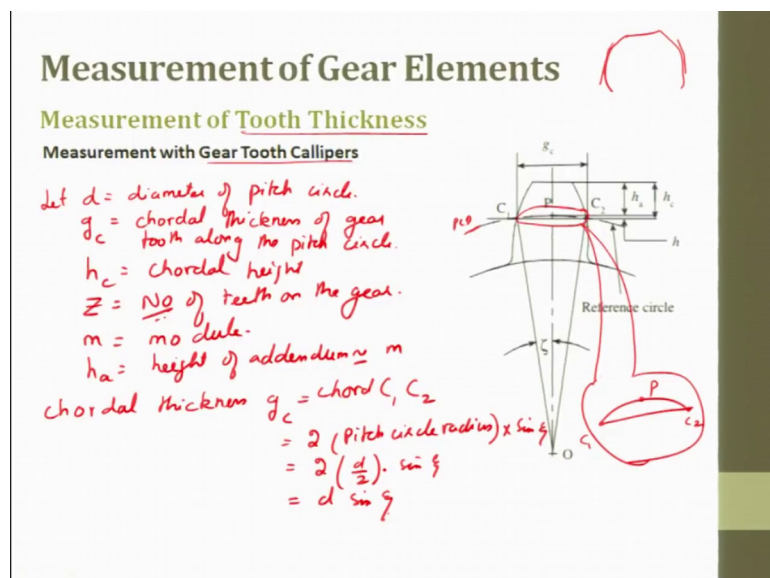 Measurement of Gear Elements
Measurement of Tooth Thickness
Measurement with Gear Tooth Callipers
Let d = diameter of pitch circle.
g_c = chordal thickness of gear
tooth along the pitch circle.
h_c = chordal height
Z = No of teeth on the gear.
m = module.
h_a = height of addendum ≈ m
Chordal thickness g_c = chord C₁ C₂
= 2 (Pitch circle radius) × sin ξ
= 2 (d/2) . sin ξ
= d sin ξ
g_c
C₁ P C₂ h_a h_c
PCD
h
Reference circle
ζ
O
P
C₁ C₂